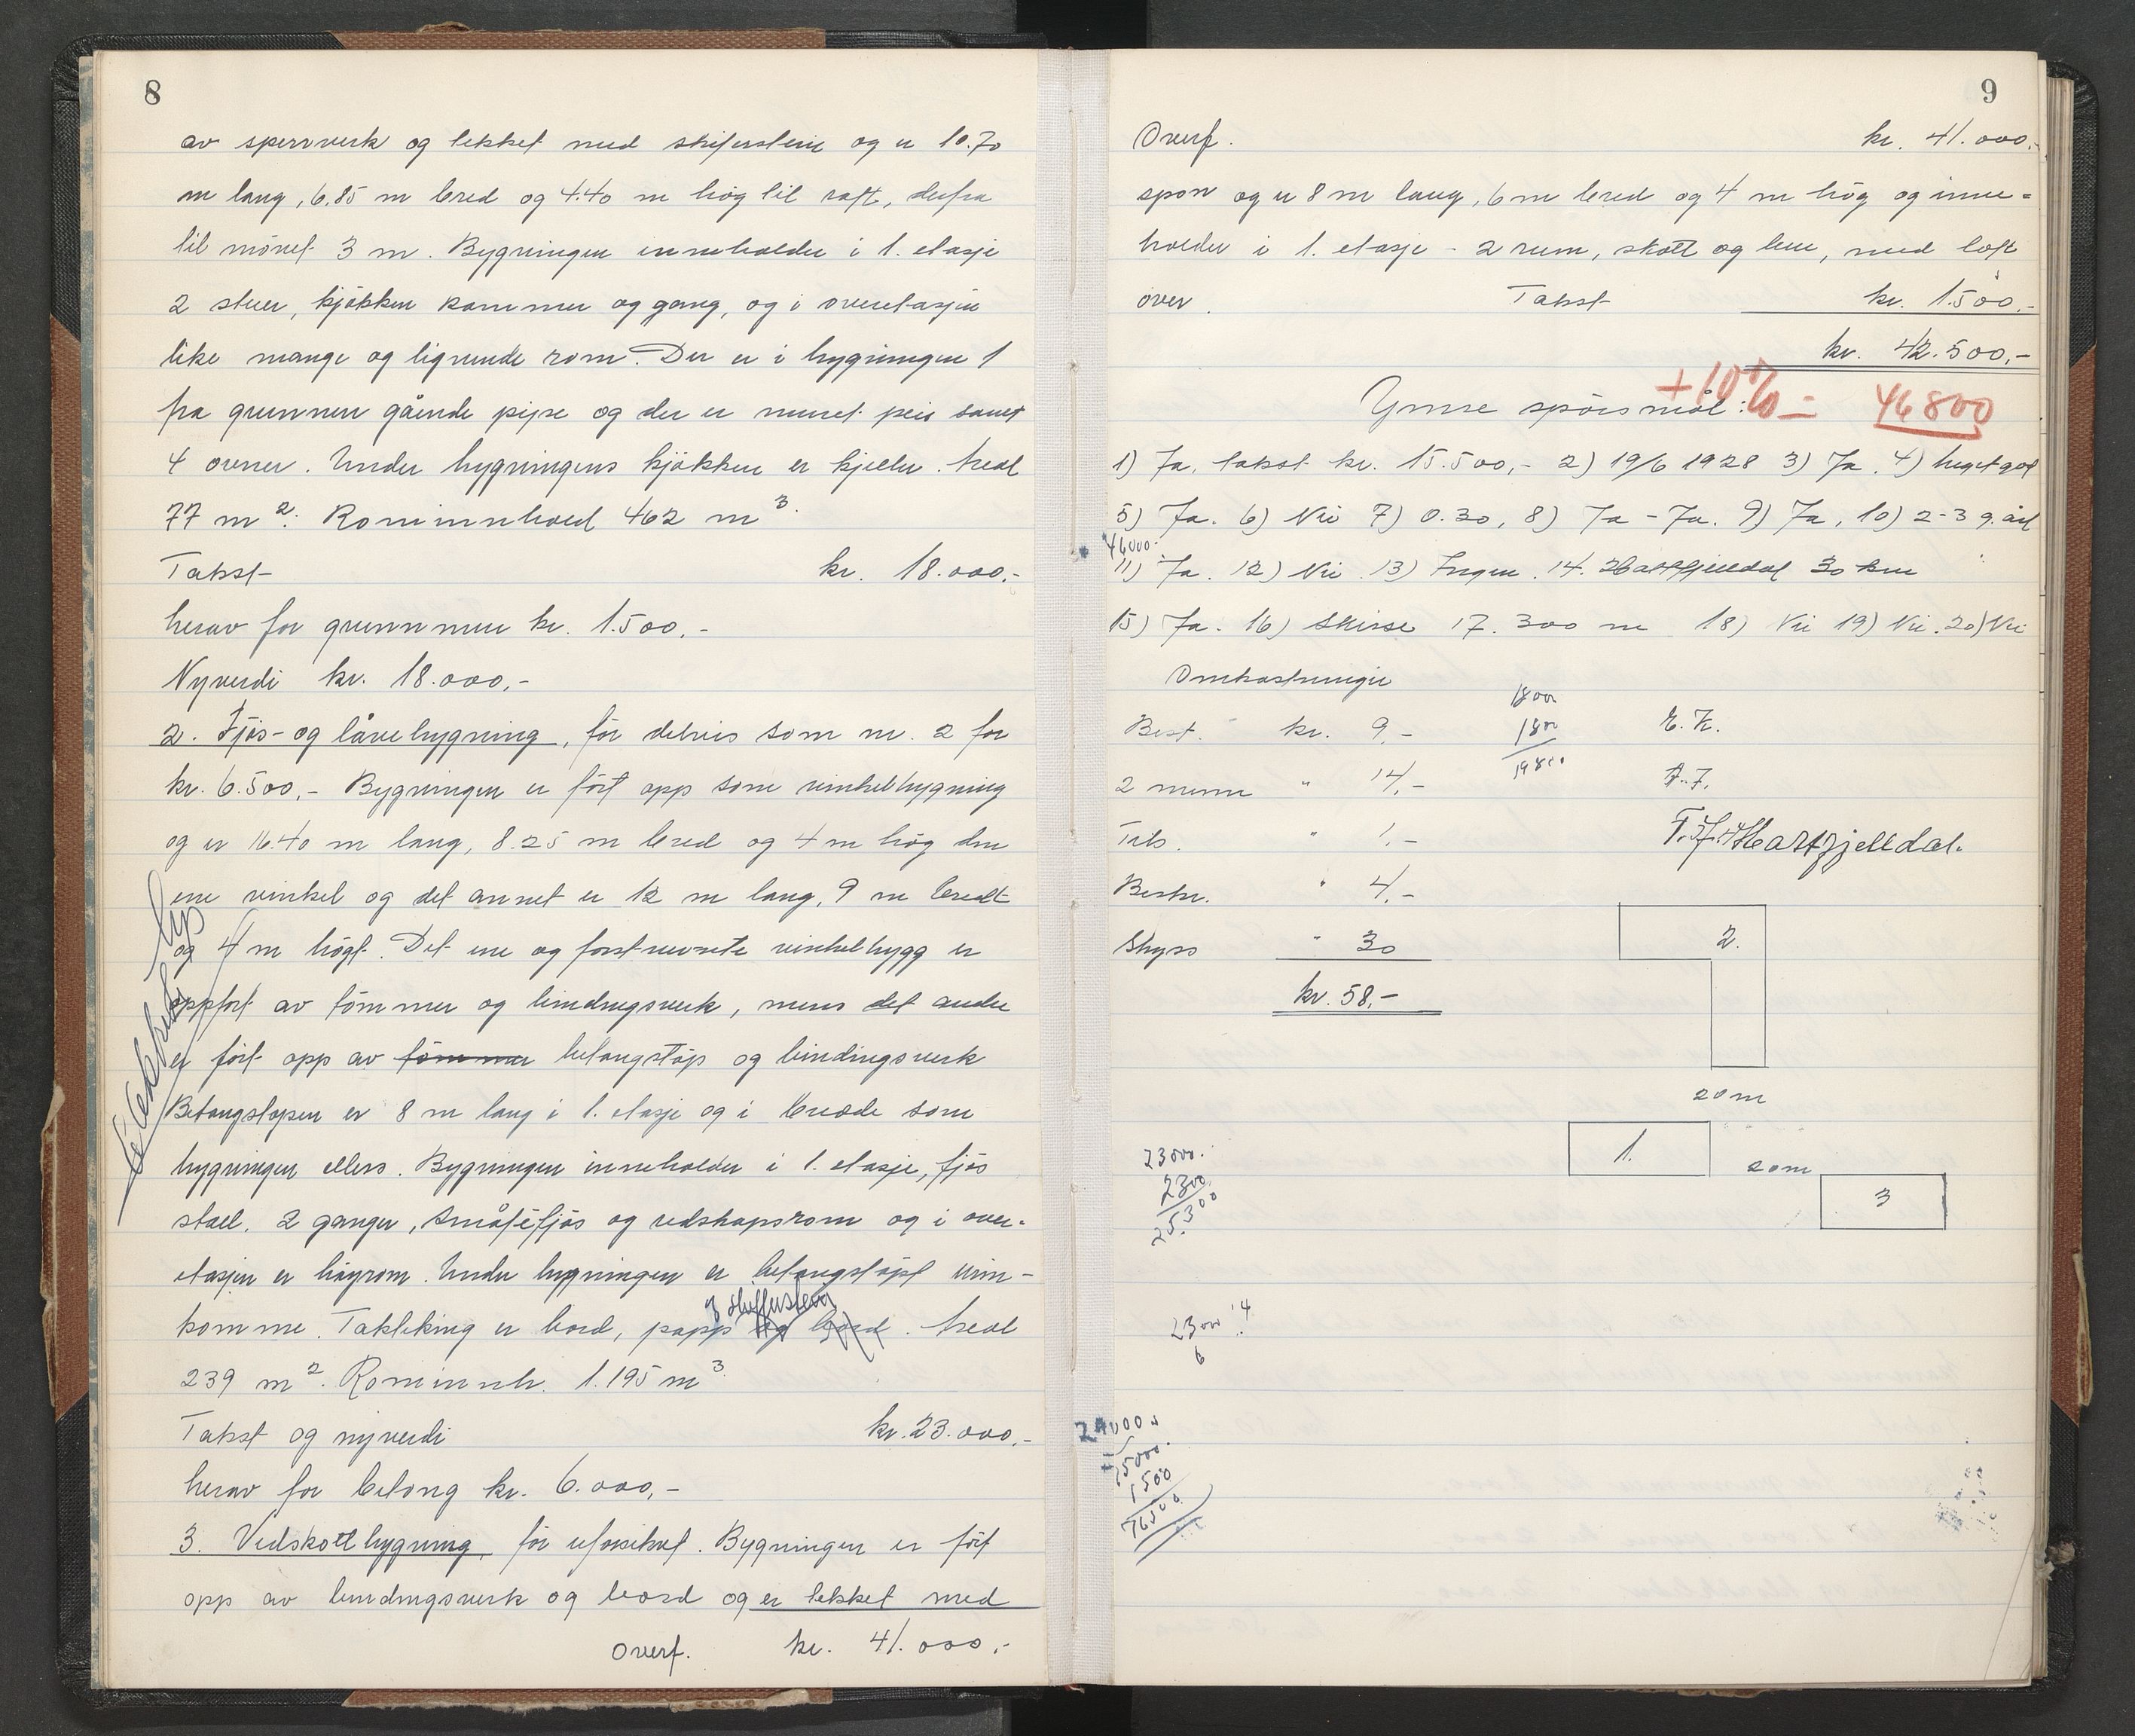 8
av sperrverk og tekket med skiferstein og er 10.70
m lang, 6,85 m bred og 4.40 m høg til raft, derfra
til mønet 3 m. Bygningen inneholder i 1. etasje
2 stuer, kjøkken kammer og gang, og i overetasjen
like mange og lignende rom. Der er i bygningen 1
fra grunnen gående pipe og der er muret peis samt
4 ovner. Under bygningens kjøkken er kjeller. Areal
77 m². Rominnhold 462 m³.
Takst kr. 18.000,-
herav for grunnmur kr. 1.500,-
Nyverdi kr. 18.000,-
2. Fjøs- og låvebygning, før delvis som nr. 2 for
kr. 6.500,- Bygningen er ført opp som vinkelbygning
og er 16.40 m lang, 8.25 m bred og 4 m høg den
ene vinkel og det annet er 12 m lang, 9 m bredt
og 4 m høgt. Det ene og førstnevnte vinkelbygg er
oppført av tømmer og bindingsverk, mens det andre
er ført opp av tømmer betongstøp og bindingsverk
Betongstøpen er 8 m lang i 1. etasje og i bredde som
bygningen ellers. Bygningen inneholder i 1. etasje, fjøs
stall, 2 ganger, småfefjøs og redskapsrom og i over-
etasjen er høyrom. Under bygningen er betongstøpt urin-
og skifferstein
komme. Taktekking er bord, papp og bord. Areal
239 m². Rominnh. 1.195 m³.
Takst og nyverdi kr. 23.000,-
herav for betong kr. 6.000,-
3. Vedskottbygning, før uforsikret. Bygningen er ført
opp av bindingsverk og bord og er tekket med
Overf. kr. 41.000,-
9
Overf. kr. 41.000,-
spon og er 8 m lang, 6 m bred og 4 m høg og inne-
holder i 1. etasje - 2 rum, skott og bu, med loft
over. Takst kr. 1.500,-
kr. 42.500,-
+10% = 46800
Ymse spørsmål:
1) Ja, takst kr. 15.500,- 2) 19/6 1928 3) Ja. 4) meget god
5) Ja. 6) Nei 7) 0.30, 8) Ja - Ja. 9) Ja, 10) 2-3 g. årl
46000.
11) Ja. 12) Nei 13) Ingen. 14. Hattfjelldal 30 km
15) Ja. 16) Skisse 17. 300 m 18) Nei 19) Nei. 20) Nei
Omkostninger
18000
Best. kr. 9,- 1800 E. K.
19800
2 menn " 14,- A. F.
Tils. " 1,- T. J. Hattfjelldal.
Beskr. " 4,-
Skyss " 30
kr. 58,-
2.
20 m
1.
20 m
3
23000.
2300
25.300
2300 4
6
15000.
1500
16500